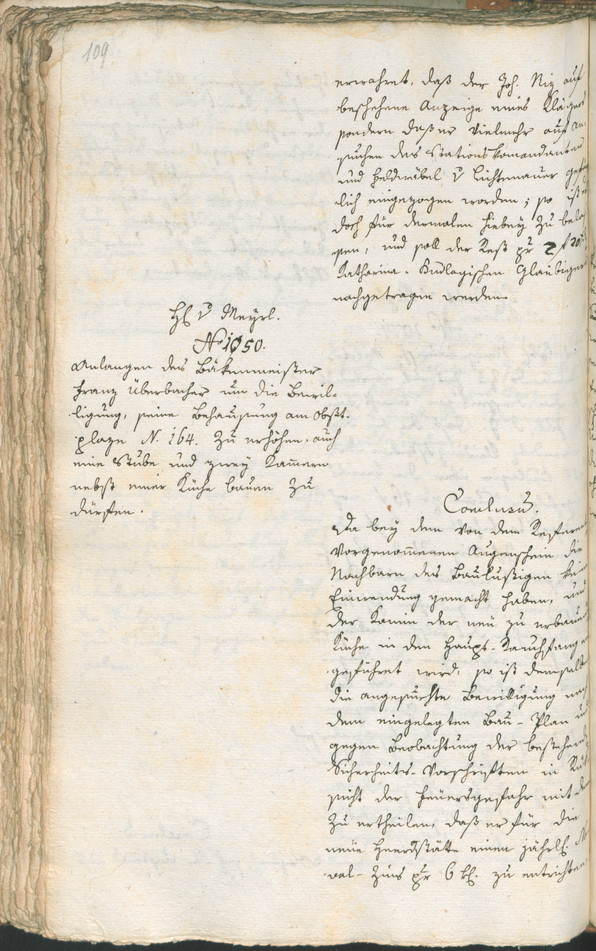 109.
erwähnet, daß der Joh. Niz auf
beschehene Anzeige eines Klägers
sondern daß er vielmehr auf An
suchen des Stations Komandanten
und Feldwäbel v Lichtenauer
lich eingezogen worden; so ist
doch für dermalen hiebey zu bela
ssen, und soll der Rest pr 2 f
Katharina Gläubiger
nachgetragen werden.
H v Mayrl.
N 1050.
Anlangen des Bäkenmeister
Franz Überbacher um die Bewil-
ligung, seine Behausung am Obst-
plaze N. 164. zu erhöhen, auch
eine Stube und zwey Kamern
nebst einer Küche bauen zu
dürfen.
Conclusu.
Da bey dem von dem Referen
vorgenommenen Augenschein die
Nachbarn des Baulustigen kein
Einwendung gemacht haben, und
der Kamin der neu zu erbau
Küche in den Haupt-Rauchfang
geführet wird; so ist demselb
die angesuchte Bewilligung nach
dem eingelegten Bau-Plan u
gegen Beobachtung der bestehen
Sicherheits-Vorschriften in Rük
sicht der Feuersgefahr mit dem
zu ertheilen, daß er für die
neue Heerdstätte einen jährl.
val-Zins pr 6 k. zu entrichten